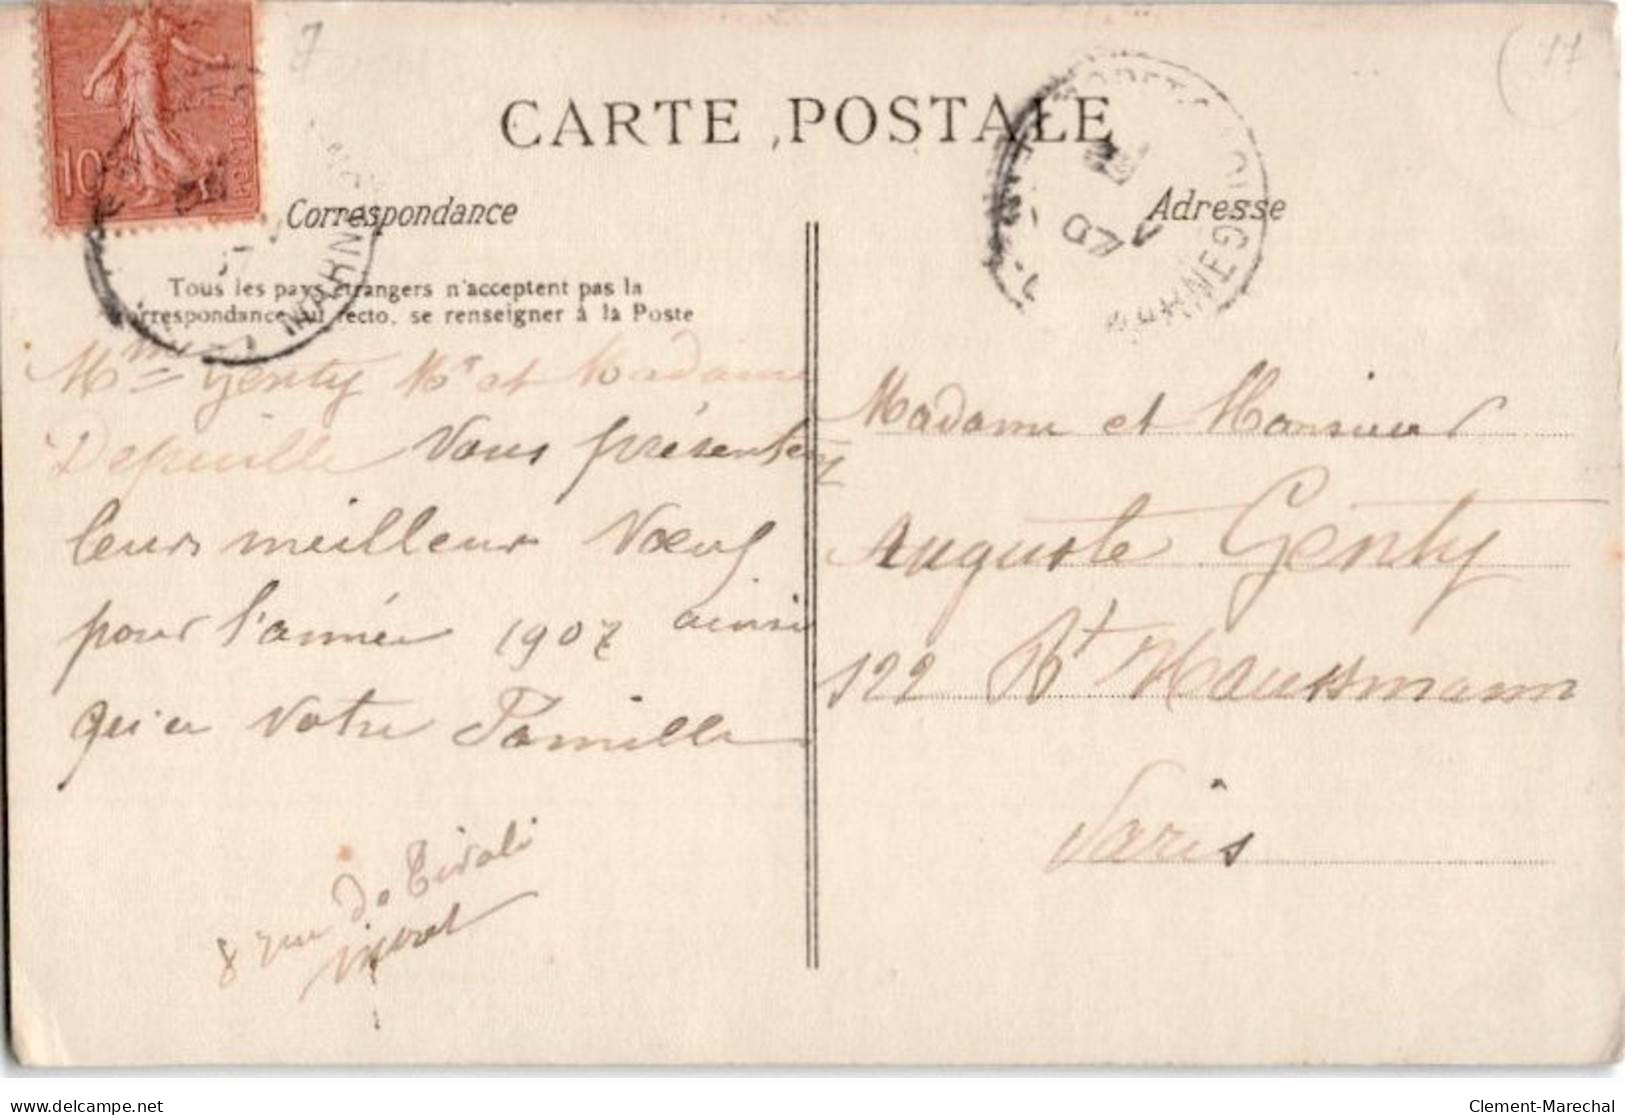 17
CARTE POSTALE
10c
POSTES
Correspondance
Tous les pays étrangers n'acceptent pas la
correspondance au recto, se renseigner à la Poste
Mme Genty Mr et Madame
Depuille Vous présentent
leurs meilleur Vœux
pour l'année 1907 ainsi
qu'a Votre Famille
8 rue De Tivoli
Adresse
07
Madame et Monsieur
Auguste Genty
122 Bt Haussmann
Paris
delcampe.net
Clement-Marechal